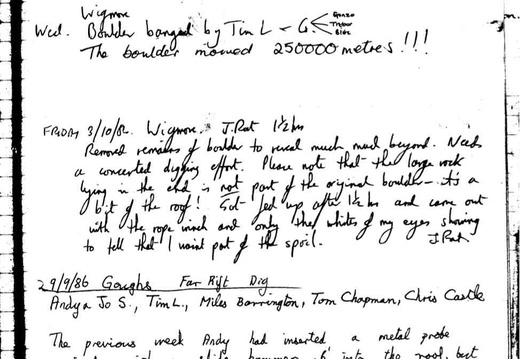 Wigmore
Wed. Boulder banged by Tim L - G. Gonzo
Trebor
Blitz
The boulder moved 250000 metres!!!
FRIDAY 3/10/86. Wigmore. J.Rat 1½ hrs
Removed remains of boulder to reveal much mud beyond. Needs
a concerted digging effort. Please note that the large rock
lying in the end is not part of the original boulder - it's a
bit of the roof! Got fed up after 1½ hrs and came out
with the rope winch and only the whites of my eyes showing
to tell that I wasnt part of the spoil. J.Rat
29/9/86 Goughs Far Rift Dig
Andy & Jo S., Tim L., Miles Barrington, Tom Chapman, Chris Castle
The previous week Andy had inserted a metal probe
into the roof, but